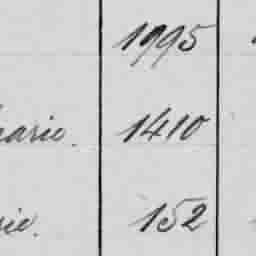 1995
arie. 1410
rie. 152